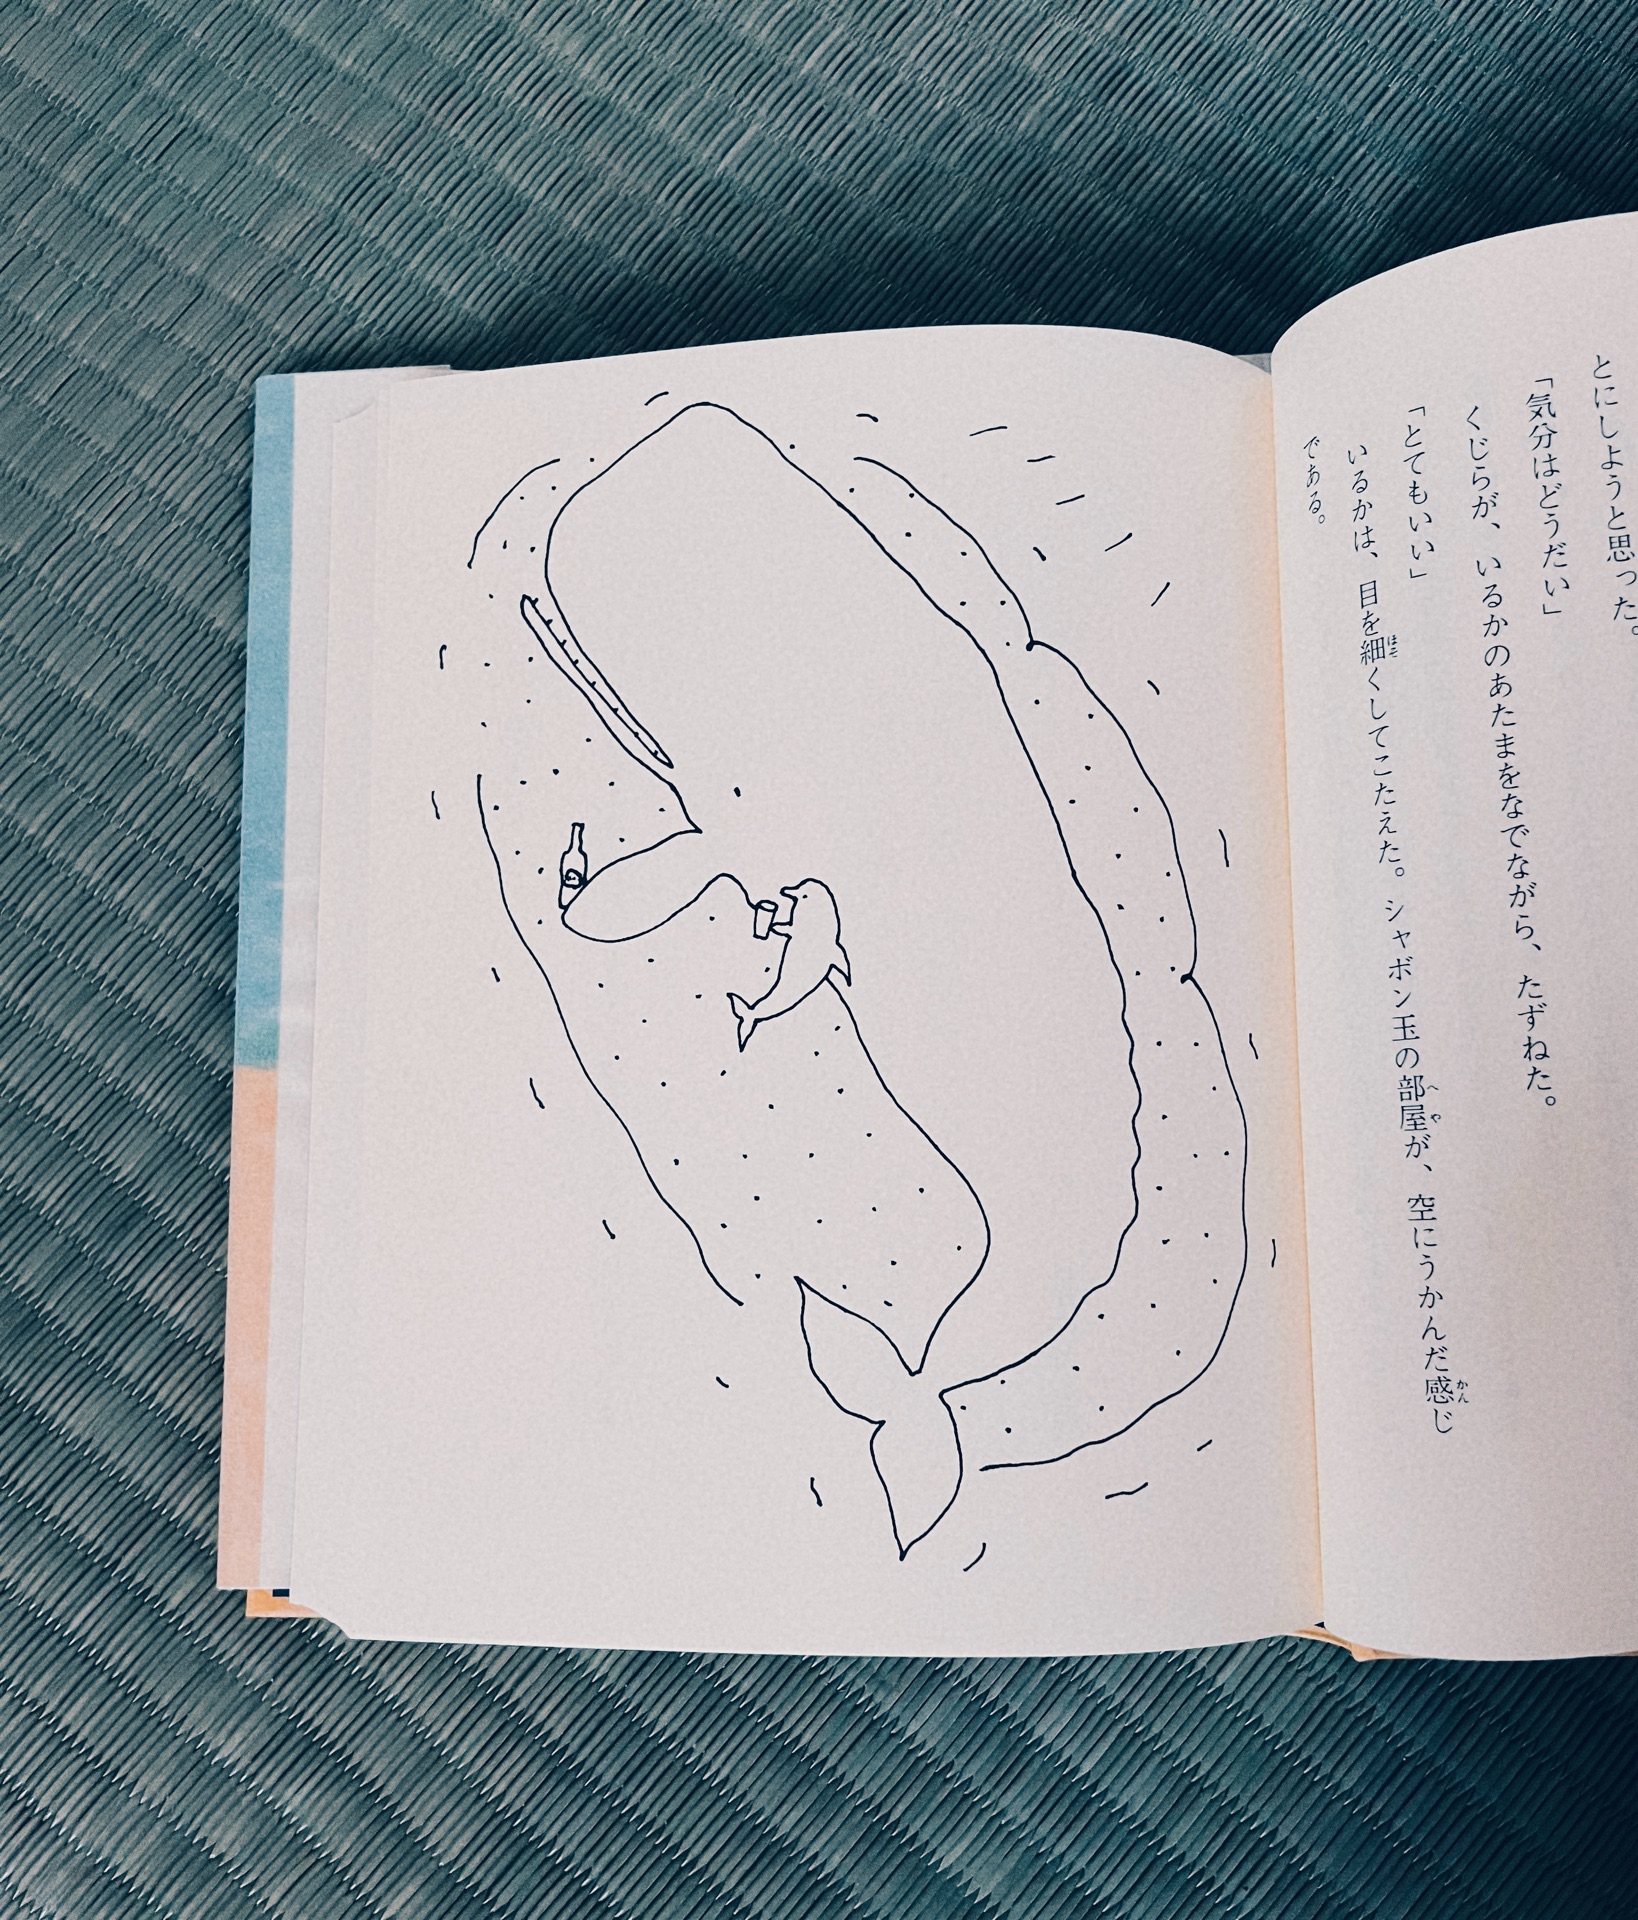 とにしようと思った。
「気分はどうだい」
くじらが、いるかのあたまをなでながら、たずねた。
「とてもいい」
いるかは、目を細くしてこたえた。シャボン玉の部屋が、空にうかんだ感じ
である。